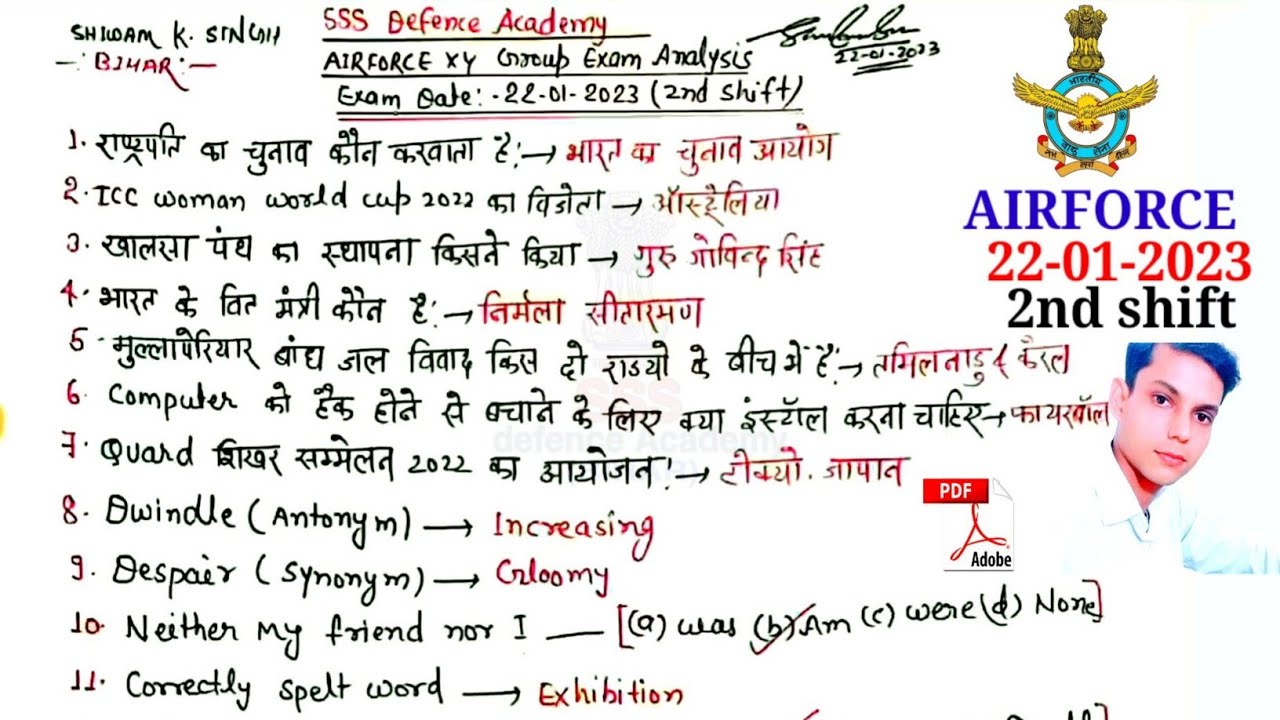 SHIWAM K. SINGH
-: BIHAR:-
SSS Defence Academy
AIRFORCE XY Group Exam Analysis
Exam Date:-22-01-2023 (2nd Shift)
22-01-2023
1. राष्ट्रपति का चुनाव कौन करवाता है:→ भारत का चुनाव आयोग
2. ICC woman world cup 2022 का विजेता → ऑस्ट्रेलिया
3. खालसा पंथ का स्थापना किसने किया → गुरु गोविन्द सिंह
4. भारत के वित मंत्री कौन है:→ निर्मला सीतारमण
5. मुल्लापेरियार बांध जल विवाद किस दो राज्यो के बीच में है:→ तमिलनाडु & कैरल
6. Computer को हैक होने से बचाने के लिए क्या इंस्टॉल करना चाहिए→ फायरवॉल
7. Quard शिखर सम्मेलन 2022 का आयोजन:→ टोक्यो. जापान
8. Dwindle (Antonym) → Increasing
9. Despair (Synonym) → Gloomy
10. Neither my friend nor I — [(a) was (b) Am (c) were (d) None]
11. Correctly spelt word → Exhibition
AIRFORCE
22-01-2023
2nd shift
PDF
Adobe
SSS
defence Academy